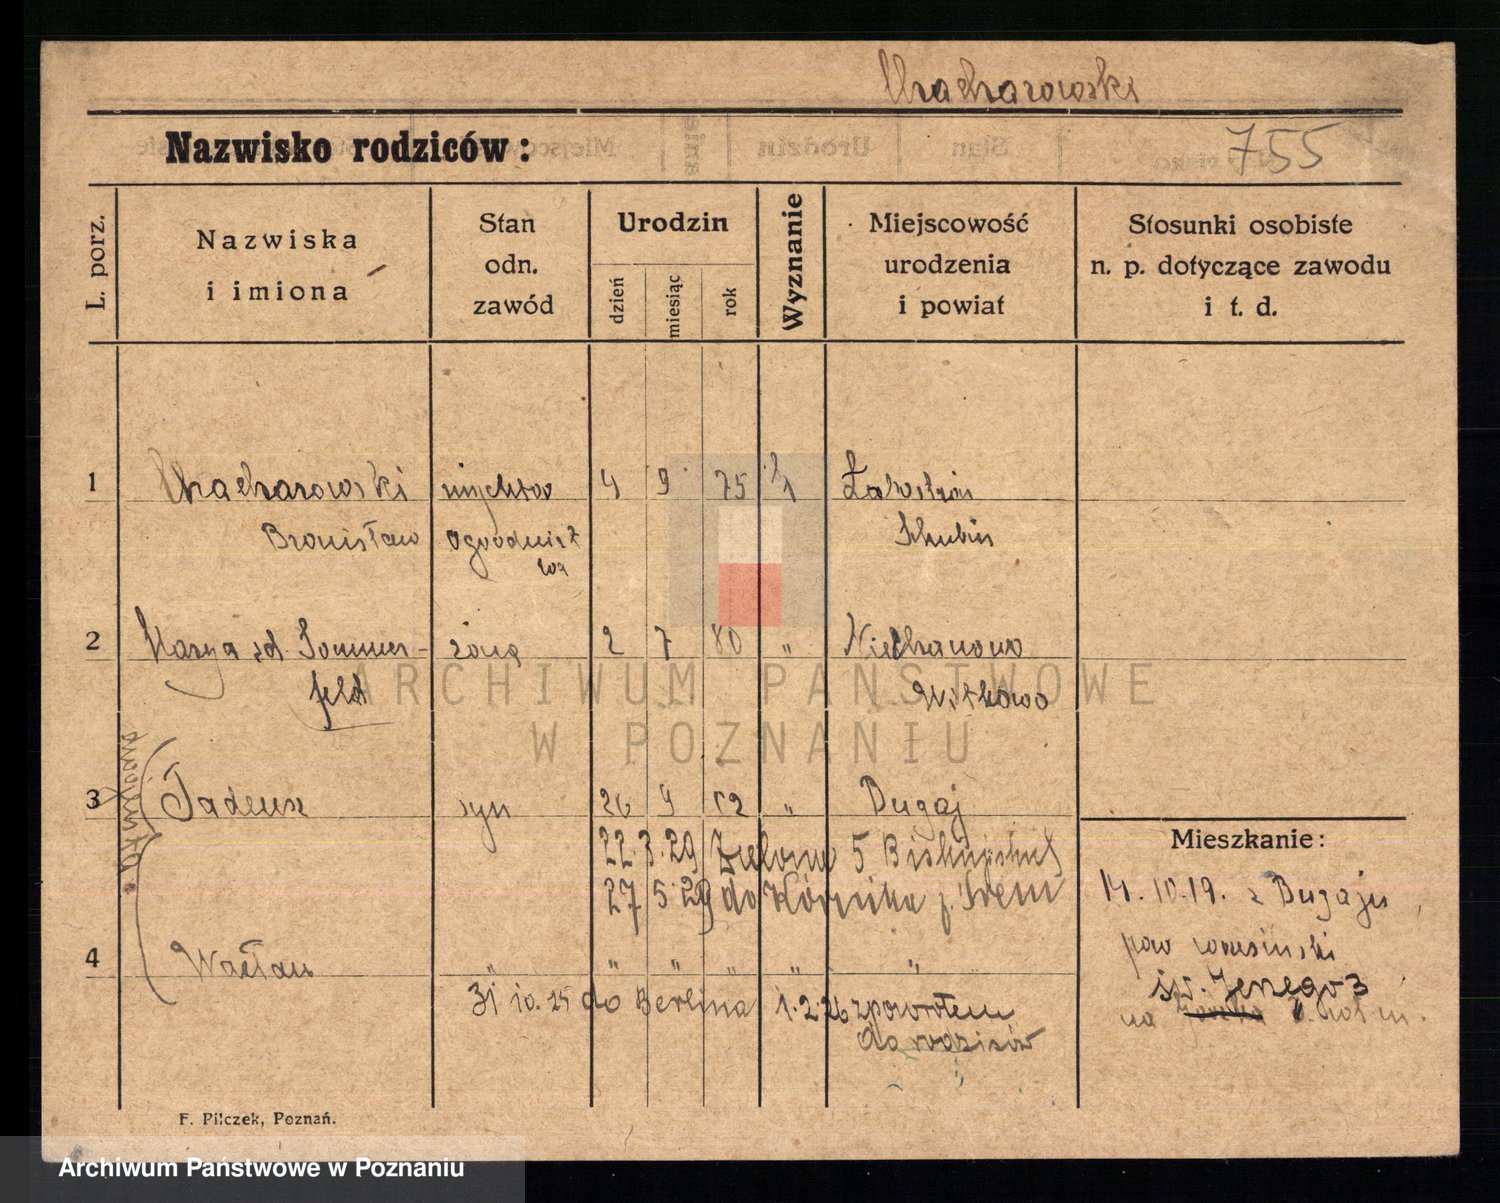 Chacharowski
Nazwisko rodziców:
755
L. porz.
Nazwiska
i imiona
Stan
odn.
zawód
Urodzin
dzień
miesiąc
rok
Wyznanie
Miejscowość
urodzenia
i powiat
Stosunki osobiste
n. p. dotyczące zawodu
i t. d.
1 Chacharowski 4 9 75
Bronisław ogrodnict
wa Schubin
2 Marya Sommer-
feld żona 2 7 80 "
Witkowo
3 Tadeusz syn 26 9 12 " Bugaj
22.3.29 Zielona 5
27 5.29 do Kórnika p. Śrem
4 Wacław " " " " " "
31 10. 25 do Berlina 1.2.26 zpowrotem
do rodziców
bliźnięta
Mieszkanie:
14. 10. 19. z Bugaju
pow
św. Jerzego 3
na
F. Pilczek, Poznań.
ARCHIWUM PAŃSTWOWE
W POZNANIU
Archiwum Państwowe w Poznaniu